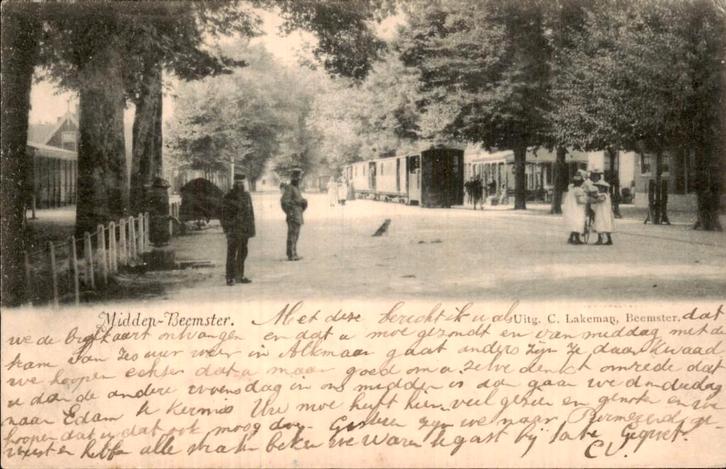 Midden-Beemster.
Uitg. C. Lakeman, Beemster.
Met deze bericht ik u als dat
we de briefkaart ontvangen en dat u moe gezondt en van middag met de
tram van zes uur weer in Alkmaar gaat anders zijn ze daar kwaad
we hoopen echter dat u maar goed om a. zelve denckt omrede dat
u dan de andere woensdag in ons midden is dan gaan we donderdag
naar Edam te Kermis Uw moe heeft hier veel gezien en genoten en we
hoopen dat u dat ook moog doen. Gisteren zijn we naar Purmerend ge
weest en hebben alle straten bekeken we waren te gast bij
C.